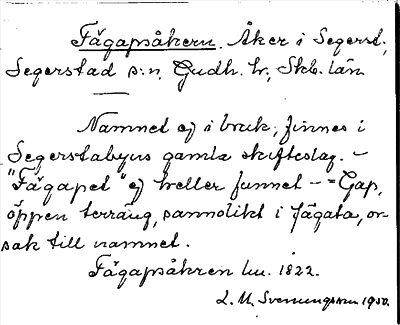 Fägapsåkern. Åker i Segerst.,
Segerstad s:n, Gudh. hr, Skb. län
Namnet ej i bruk, finnes i
Segerstabyns gamla skifteslag. –
"Fägapet" ej heller funnet – = Gap,
öppen terräng, sannolikt i fägata, or-
sak till namnet.
Fägapsåkren hu. 1822.
L. M. Svenungsson 1950.